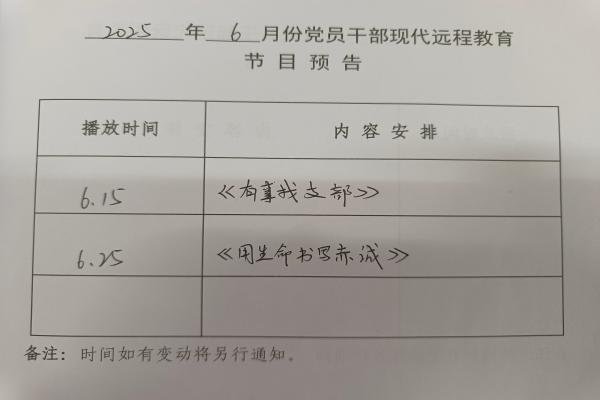 2025 年 6 月份党员干部现代远程教育
节目预告
播放时间 内容安排
6.15 《有事找支部》
6.25 《用生命书写赤诚》
备注：时间如有变动将另行通知。